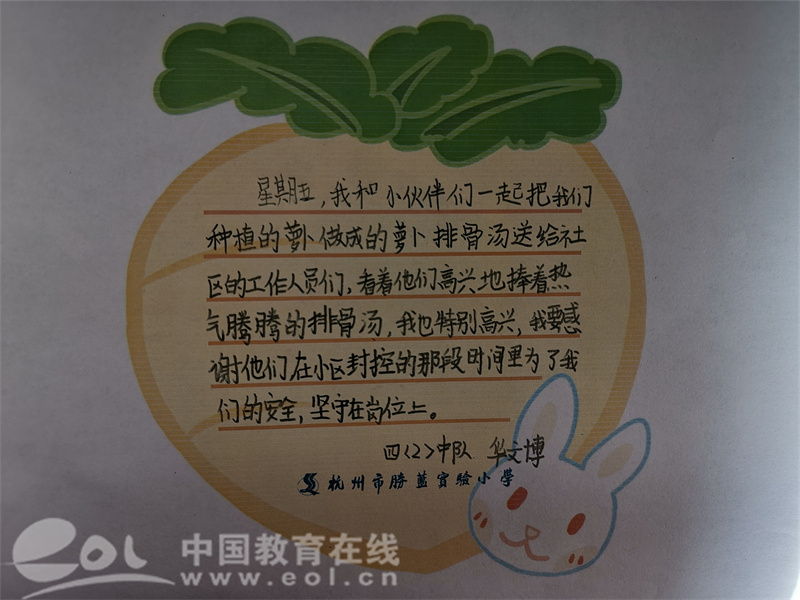 星期五，我和小伙伴们一起把我们
种植的萝卜做成的萝卜排骨汤送给社
区的工作人员们，看着他们高兴地捧着热
气腾腾的排骨汤，我也特别高兴，我要感
谢他们在小区封控的那段时间里为了我
们的安全，坚守在岗位上。
四〈2〉中队 华文博
杭州市勝藍實驗小學
eol 中国教育在线
www.eol.cn